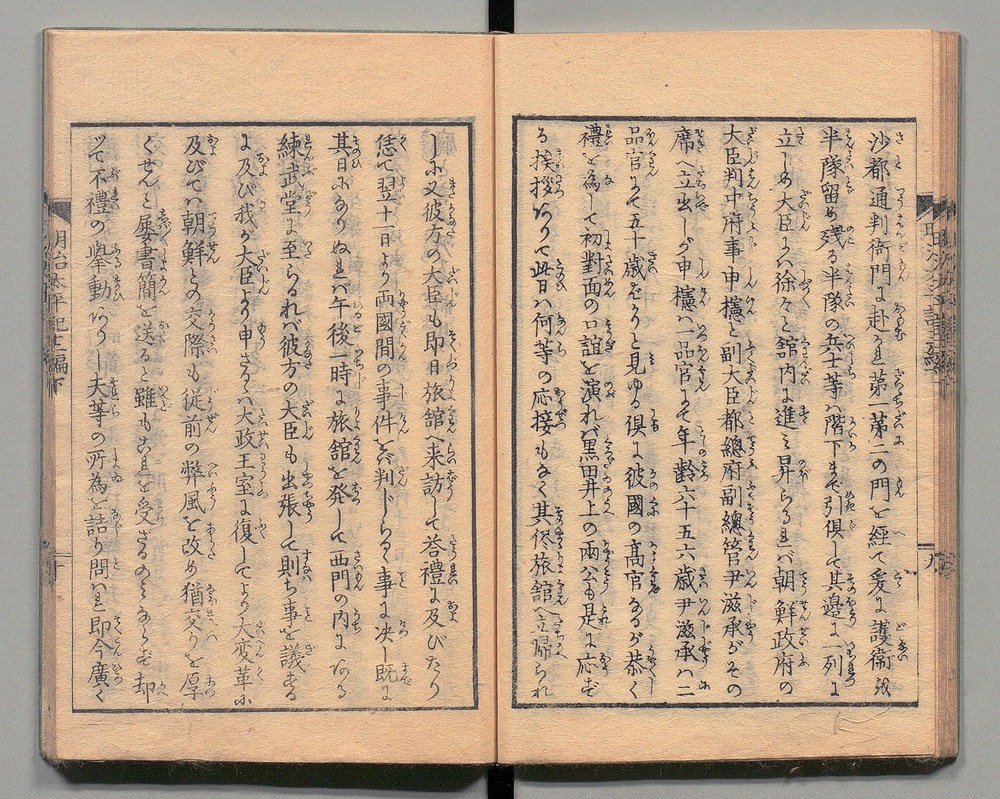 沙都通判衙門に赴かれ第一第二の門を経て爰に護衞の
半隊留め残る半隊の兵士等ハ階下まで引倶して其邉に一列に
立しめ大臣にハ徐々と舘内に進ミ昇らるれバ朝鮮政府の
大臣判中府事申櫶と副大臣都總府副總管尹滋承がその
席へ立出しが申櫶ハ一品官にて年齢六十五六歳尹滋承ハ二
品官にて五十歳をかりと見ゆる倶に彼國の髙官なるが恭く
禮を為して初對面の口誼を演れバ黒田井上の両公も是に応ず
る挨拶ありて此日ハ何等の応接もなく其侭旅舘へ立帰られ
しに又彼方の大臣も即日旅舘へ来訪して答禮に及びたり
恁て翌十一日より両國間の事件を判じらるゝ事に决し既に
其日になりぬれバ午後一時に旅舘を発して西門の内にある
練武堂に至られバ彼方の大臣も出張して則ち事を議する
に及び我が大臣より申さるハ大政王室に復してより大変革に
及びてハ朝鮮との交際も従前の弊風を改め猶交りを厚
くせんと屡書簡を送ると雖もこれを受ざるのミならず却
ツて不禮の挙動ありし夫等の所為を詰り問れ即今廣く
明治太平記十二編下
九
十